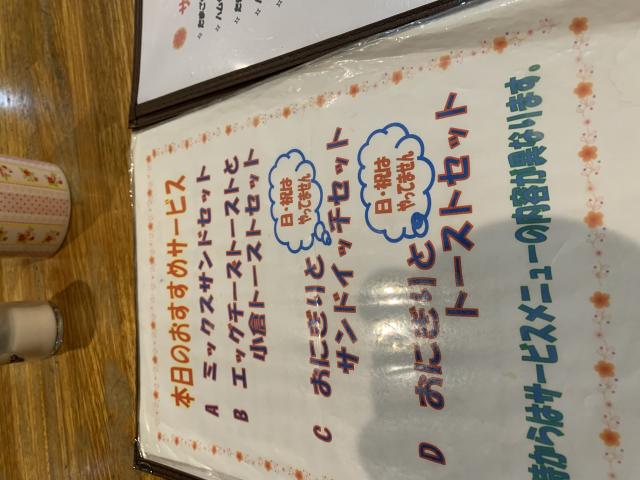 本日のおすすめサービス
A ミックスサンドセット
B エッグチーズトーストと
小倉トーストセット
日・祝は
やってません
C おにぎりと
サンドイッチセット
日・祝は
やってません
D おにぎりと
トーストセット
時からはサービスメニューの内容が異なります。